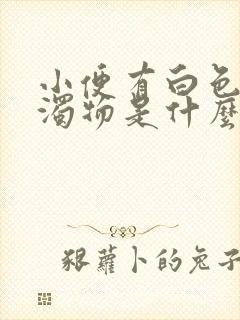 小便有白色
濁物是什麼
豤蘿卜的兔子